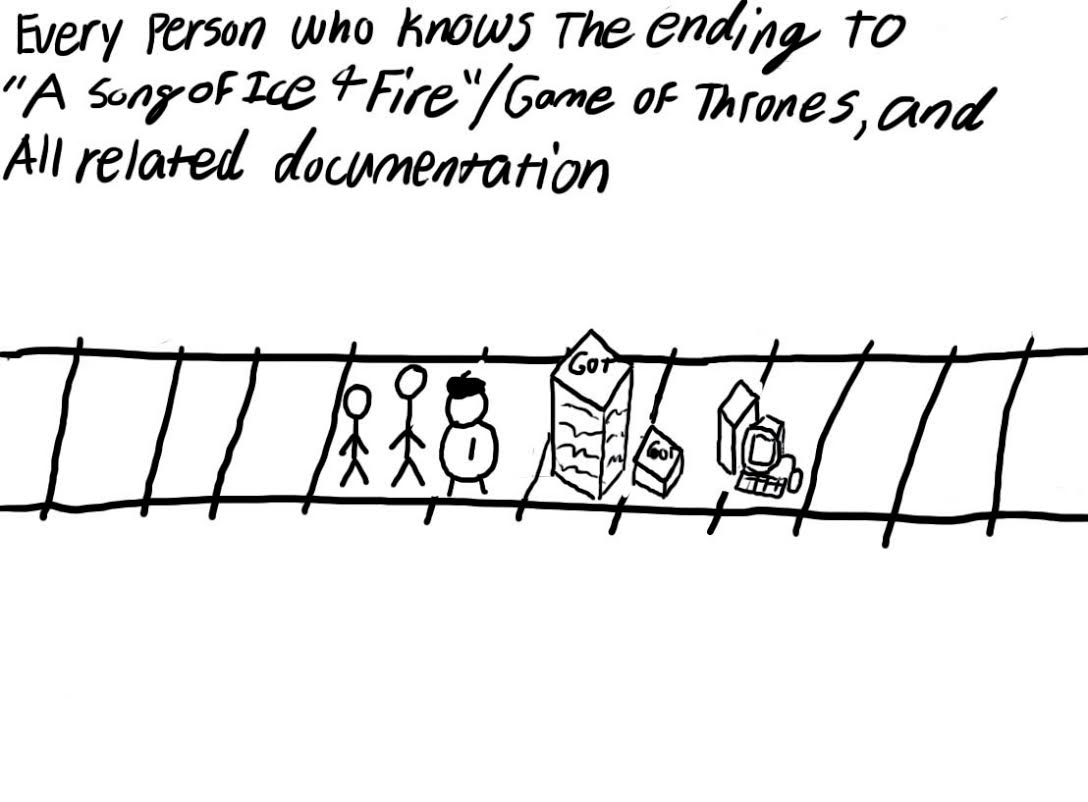 Every Person who knows The ending to
"A Song of Ice & Fire"/Game of Thrones, and
All related documentation
GOT
GOT